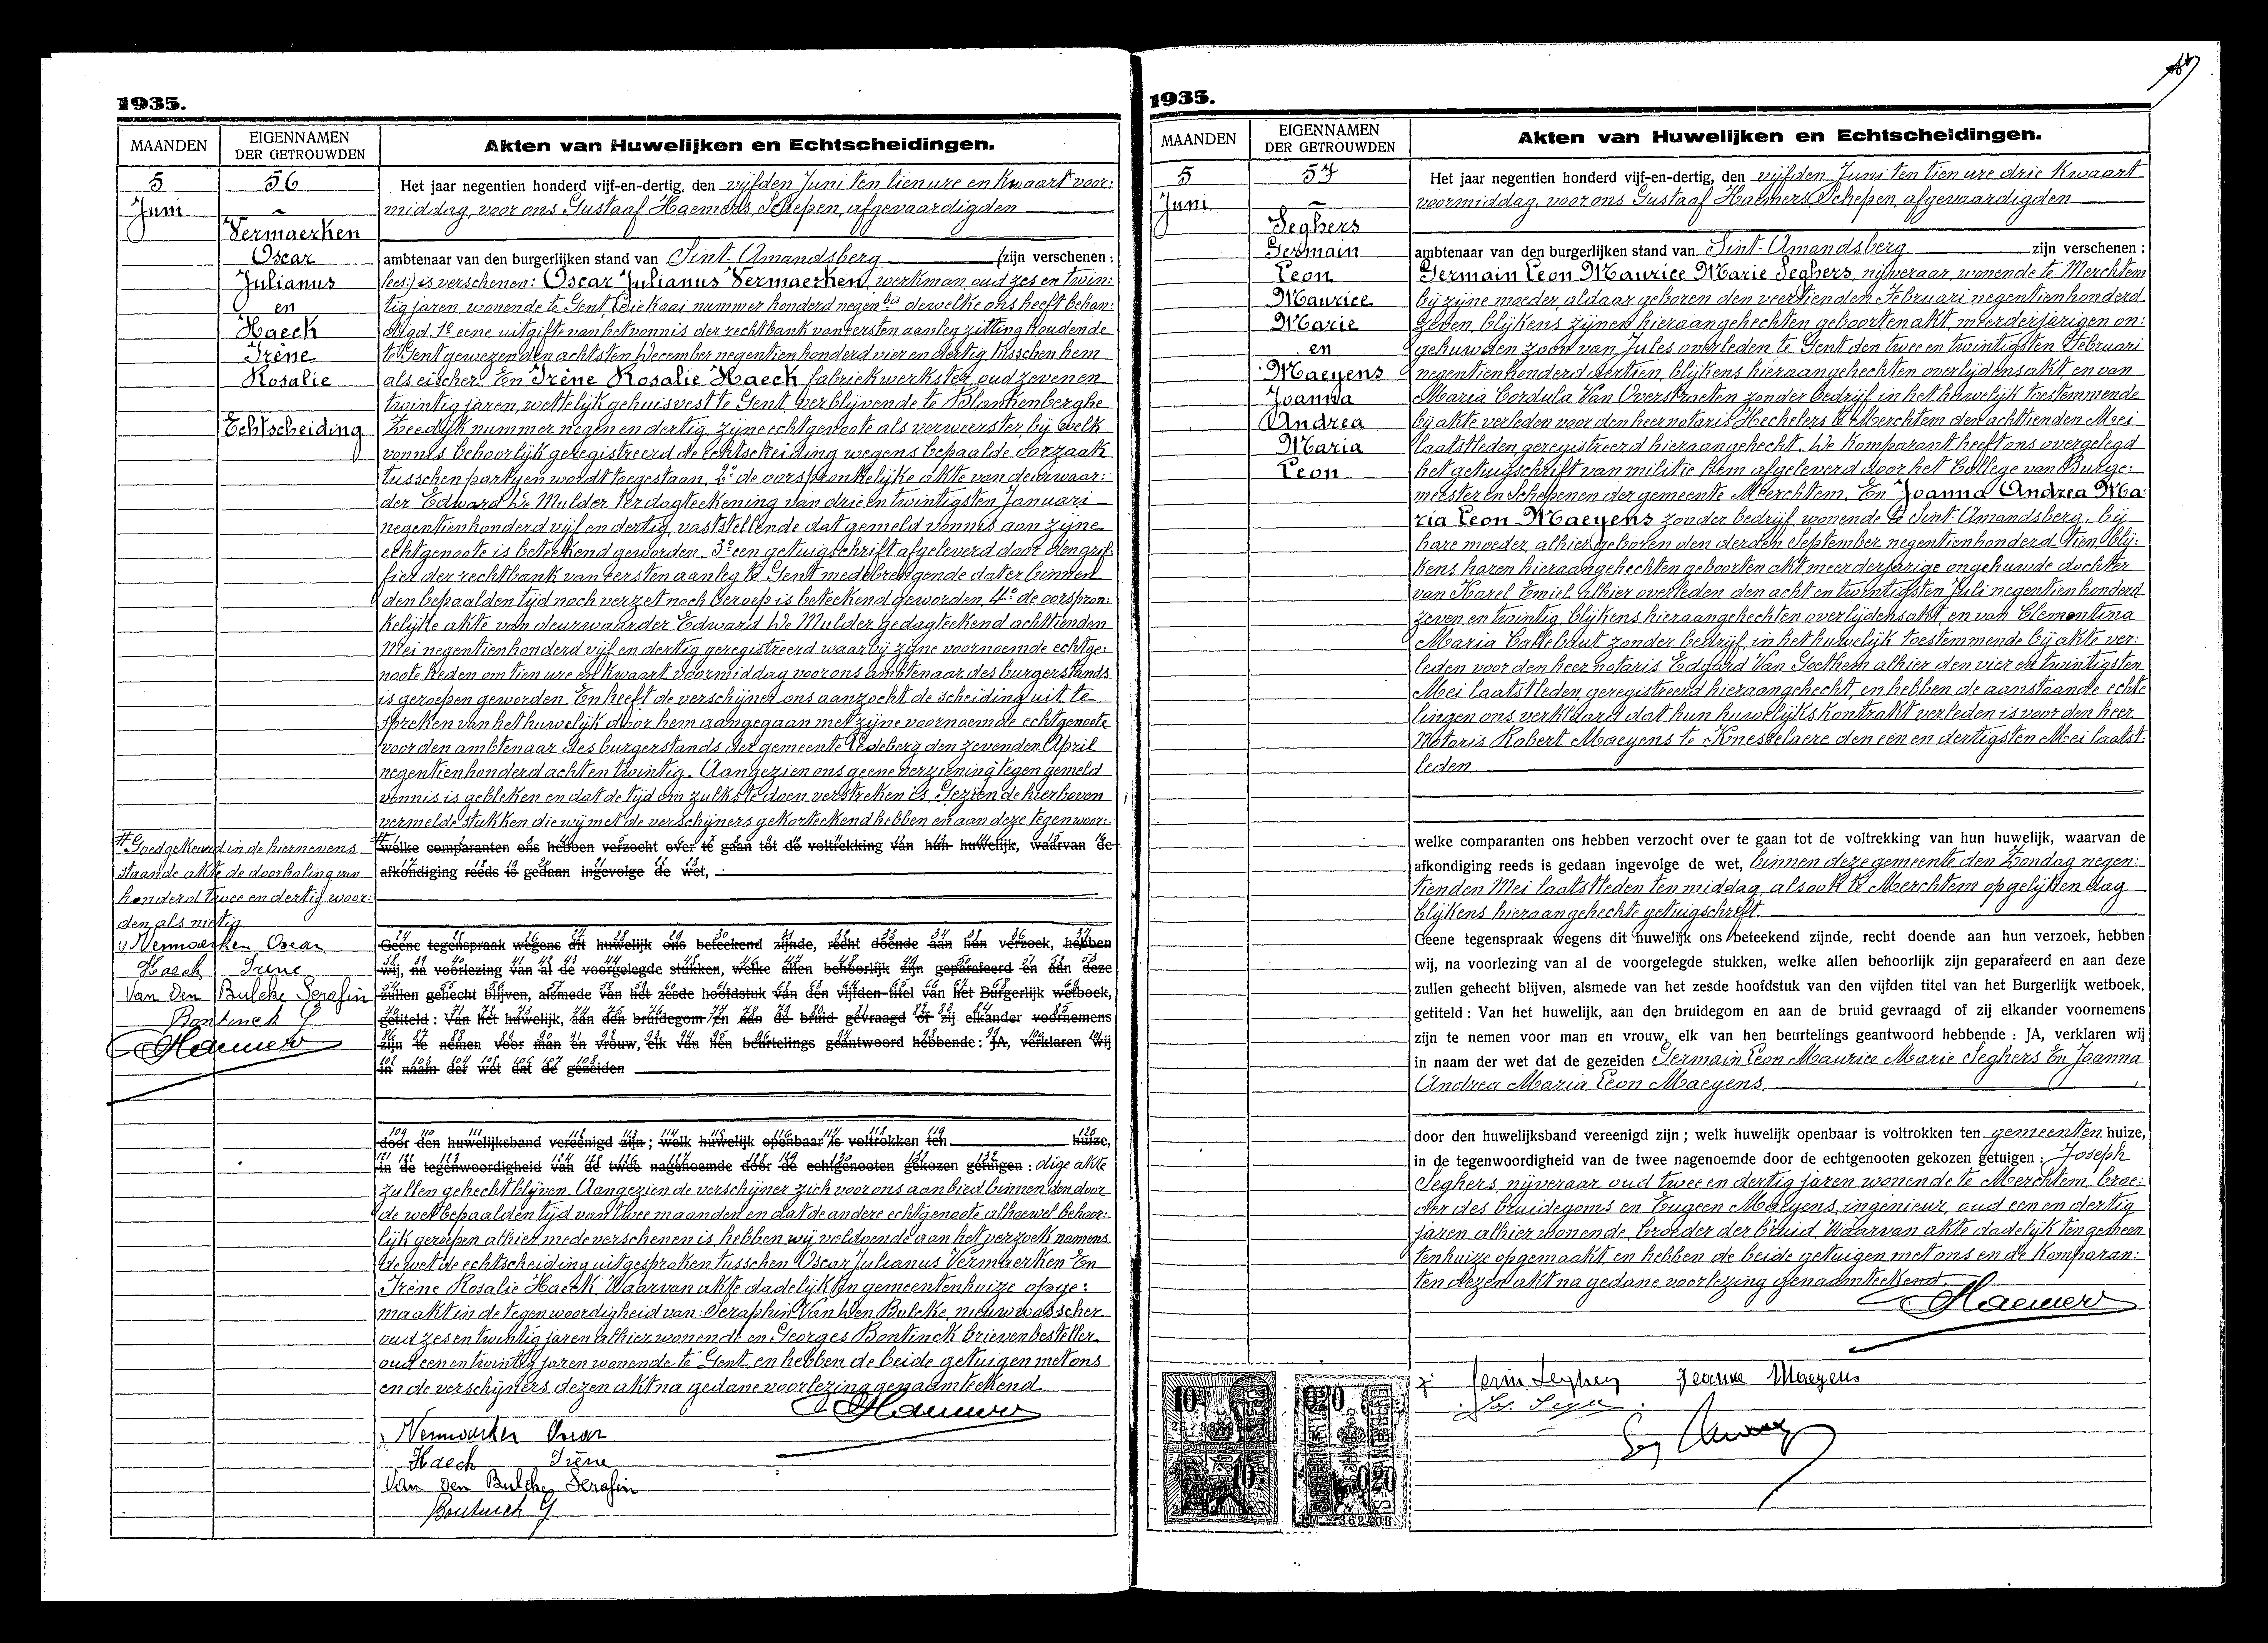 1935.
MAANDEN
EIGENNAMEN
DER GETROUWDEN
Akten van Huwelijken en Echtscheidingen.
5
Juni
56
Vermaerken
Oscar
Julianus
en
Haeck
Irène
Rosalie
Echtscheiding
Het jaar negentien honderd vijf-en-dertig, den vijfden Juni ten tien ure en kwaart voor:
middag, voor ons Gustaaf Haemers, Schepen, afgevaardigden
ambtenaar van den burgerlijken stand van Sint-Amandsberg (zijn verschenen:
lees) is verschenen: Oscar Julianus Vermaerken, werkman, oud zes en twin:
tig jaren, wonende te Gent, Leiekaai nummer honderd negen bis dewelke ons heeft behan:
digd 1º eene uitgifte van het vonnis der rechtbank van eersten aanleg zitting houdende
te Gent gewezen den achtsten December negentienhonderd vier en dertig tusschen hem
als eischer. En Irène Rosalie Haeck fabriekwerkster, oud zeven en
twintig jaren, wettelijk gehuisvest te Gent, verblijvende te Blankenberghe
Zeedijk nummer negen en dertig, zijne echtgenoote als verweerster, bij welk
vonnis behoorlijk geregistreerd de echtscheiding wegens bepaalde oorzaak
tusschen partijen wordt toegestaan, 2º de oorspronkelijke akte van deurwaar:
der Edward De Mulder ter dagteekening van drie en twintigsten Januari
negentienhonderd vijf en dertig, vaststellende dat gemeld vonnis aan zijne
echtgenoote is beteekend geworden. 3º een getuigschrift afgeleverd door den grif:
fier der rechtbank van eersten aanleg te Gent medebrengende dat er binnen
den bepaalden tijd noch verzet noch beroep is beteekend geworden, 4º de oorspron:
kelijke akte van deurwaarder Edward De Mulder gedagteekend achttienden
Mei negentienhonderd vijf en dertig geregistreerd waarbij zijne voornoemde echtge:
noote heden om tien ure en kwaart voormiddag voor ons ambtenaar des burgerstands
is geroepen geworden. En heeft de verschijner ons aanzocht de scheiding uit te
spreken van het huwelijk door hem aangegaan met zijne voornoemde echtgenoote
voor den ambtenaar des burgerstands der gemeente Ledeberg den zevenden April
negentienhonderd acht en twintig. Aangezien ons geene verziening tegen gemeld
vonnis is gebleken en dat de tijd om zulks te doen verstreken is. Gezien de hierboven
vermelde stukken die wij met de verschijners gekorteekend hebben en aan deze tegenwoor:
# Goedgekeurd in de hiernevens
staande akte de doorhaling van
honderd twee en dertig woor:
den als nietig
Vermaerken Oscar
Haeck Irène
Van Den Bulcke Serafin
Bontinck G.
Haemers
welke comparanten ons hebben verzocht over te gaan tot de voltrekking van hun huwelijk, waarvan de
afkondiging reeds is gedaan ingevolge de wet,
Geene tegenspraak wegens dit huwelijk ons beteekend zijnde, recht doende aan hun verzoek, hebben
wij, na voorlezing van al de voorgelegde stukken, welke allen behoorlijk zijn geparafeerd en aan deze
zullen gehecht blijven, alsmede van het zesde hoofdstuk van den vijfden titel van het Burgerlijk wetboek,
getiteld: Van het huwelijk, aan den bruidegom en aan de bruid gevraagd of zij elkander voornemens
zijn te nemen voor man en vrouw, elk van hen beurtelings geantwoord hebbende: JA, verklaren wij
in naam der wet dat de gezeiden
door den huwelijksband vereenigd zijn; welk huwelijk openbaar is voltrokken ten huize,
in de tegenwoordigheid van de twee nagenoemde door de echtgenooten gekozen getuigen: dige akte
zullen gehecht blijven. Aangezien de verschijner zich voor ons aanbied binnen den door
de wet bepaalden tijd van twee maanden en dat de andere echtgenoote alhoewel behoor:
lijk geroepen alhier mede verschenen is, hebben wij voldoende aan het verzoek namens
de wet de echtscheiding uitgesproken tusschen Oscar Julianus Vermaerken En
Irène Rosalie Haeck. Waarvan akte dadelijk ten gemeentenhuize opge:
maakt in de tegenwoordigheid van: Seraphin Van Den Bulcke, nieuwwasscher
oud zes en twintig jaren alhier wonende en Georges Bontinck brievenbesteller
oud een en twintig jaren wonende te Gent, en hebben de beide getuigen met ons
en de verschijners dezen akt na gedane voorlezing genaamteekend.
Haemers
Vermaerken Oscar
Haeck Irène
Van Den Bulcke Serafin
Bontinck G.
1935.
MAANDEN
EIGENNAMEN
DER GETROUWDEN
Akten van Huwelijken en Echtscheidingen.
5
Juni
57
Seghers
Germain
Leon
Maurice
Marie
en
Maeyens
Joanna
Andrea
Maria
Leon
Het jaar negentien honderd vijf-en-dertig, den vijfden Juni ten tien ure drie kwaart
voormiddag, voor ons Gustaaf Haemers, Schepen, afgevaardigden
ambtenaar van den burgerlijken stand van Sint-Amandsberg zijn verschenen:
Germain Leon Maurice Marie Seghers, nijveraar, wonende te Merchtem
bij zijne moeder, aldaar geboren den veertienden Februari negentienhonderd
zeven, blijkens zijnen hieraangehechten geboortenakt, meerderjarigen on:
gehuwden zoon van Jules overleden te Gent den twee en twintigsten Februari
negentienhonderd dertien, blijkens hieraangehechten overlijdensakt, en van
Maria Cordula Van Overstraeten zonder bedrijf in het huwelijk toestemmende
bij akte verleden voor den heer notaris Hechelers te Merchtem den achttienden Mei
laatstleden geregistreerd hieraangehecht. De komparant heeft ons overgelegd
het getuigschrift van militie hem afgeleverd door het College van Burge:
meester en Schepenen der gemeente Merchtem. En Joanna Andrea Ma:
ria Leon Maeyens zonder bedrijf, wonende te Sint-Amandsberg, bij
hare moeder, alhier geboren den derden September negentienhonderd tien, blij:
kens haren hieraangehechten geboortenakt, meerderjarige ongehuwde dochter
van Karel Emiel alhier overleden den acht en twintigsten Juli negentienhonderd
zeven en twintig, blijkens hieraangehechten overlijdensakt, en van Clementina
Maria Callebaut zonder bedrijf, in het huwelijk toestemmende bij akte ver:
leden voor den heer notaris Edgard Van Goethem alhier den vier en twintigsten
Mei laatstleden, geregistreerd hieraangehecht, en hebben de aanstaande echte
lingen ons verklaard dat hun huwelijkskontrakt verleden is voor den heer
Notaris Robert Maeyens te Knesselaere den een en dertigsten Mei laatst
leden.
welke comparanten ons hebben verzocht over te gaan tot de voltrekking van hun huwelijk, waarvan de
afkondiging reeds is gedaan ingevolge de wet, binnen deze gemeente den Zondag negen:
tienden Mei laatstleden ten middag, alsook te Merchtem op gelijken dag
blijkens hieraangehechte getuigschrift.
Geene tegenspraak wegens dit huwelijk ons beteekend zijnde, recht doende aan hun verzoek, hebben
wij, na voorlezing van al de voorgelegde stukken, welke allen behoorlijk zijn geparafeerd en aan deze
zullen gehecht blijven, alsmede van het zesde hoofdstuk van den vijfden titel van het Burgerlijk wetboek,
getiteld: Van het huwelijk, aan den bruidegom en aan de bruid gevraagd of zij elkander voornemens
zijn te nemen voor man en vrouw, elk van hen beurtelings geantwoord hebbende: JA, verklaren wij
in naam der wet dat de gezeiden Germain Leon Maurice Marie Seghers En Joanna
Andrea Maria Leon Maeyens.
door den huwelijksband vereenigd zijn; welk huwelijk openbaar is voltrokken ten gemeenten huize,
in de tegenwoordigheid van de twee nagenoemde door de echtgenooten gekozen getuigen: Joseph
Seghers, nijveraar oud twee en dertig jaren wonende te Merchtem, broe:
der des bruidegoms en Eugeen Maeyens, ingenieur, oud een en dertig
jaren alhier wonende, broeder der bruid. Waarvan akte dadelijk ten gemeen
tenhuize opgemaakt en hebben de beide getuigen met ons en de komparan:
ten dezen akt na gedane voorlezing genaamteekend.
Haemers
Jeanne Maeyens
0.20